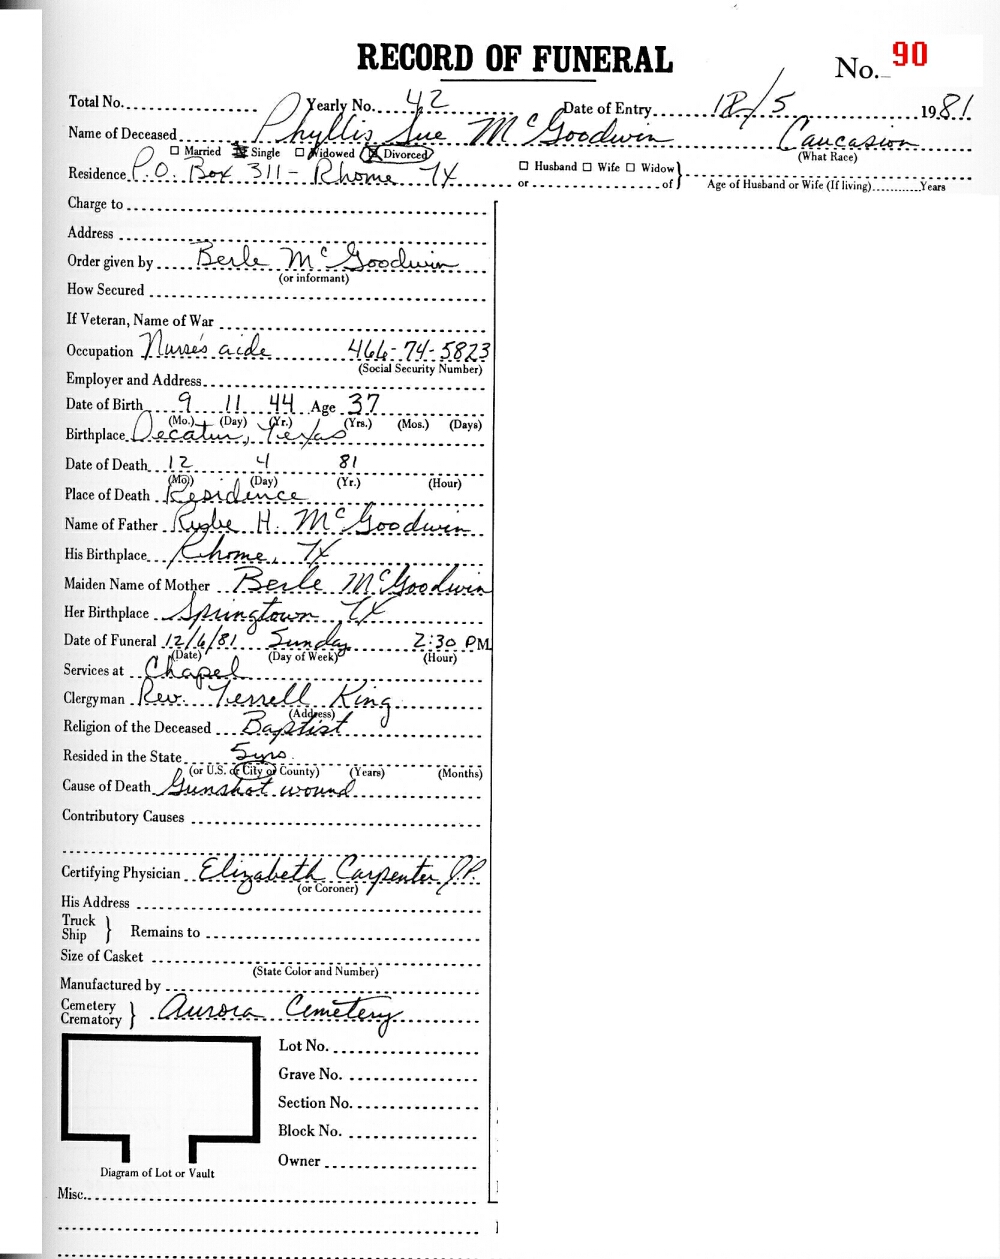 RECORD OF FUNERAL
No. 90
Total No. Yearly No. 42 Date of Entry 12/5 1981
Name of Deceased Phyllis Sue McGoodwin Caucasion
(What Race)
☐ Married ☒ Single ☐ Widowed ☒ Divorced
Residence P.O. Box 311 - Rhome TX ☐ Husband ☐ Wife ☐ Widow
or of Age of Husband or Wife (If living) Years
Charge to
Address
Order given by Berle McGoodwin
(or informant)
How Secured
If Veteran, Name of War
Occupation Nurse's aide 466-74-5823
(Social Security Number)
Employer and Address
Date of Birth 9 11 44 Age 37
(Mo.) (Day) (Yr.) (Yrs.) (Mos.) (Days)
Birthplace Decatur, Texas
Date of Death 12 4 81
(Mo) (Day) (Yr.) (Hour)
Place of Death Residence
Name of Father H. McGoodwin
His Birthplace Rhome, TX
Maiden Name of Mother Berle McGoodwin
Her Birthplace Springtown TX
Date of Funeral 12/6/81 Sunday 2:30 PM
(Date) (Day of Week) (Hour)
Services at Chapel
Clergyman Rev. Terrell King
(Address)
Religion of the Deceased Baptist
Resided in the State 5yrs.
(or U.S. or City or County) (Years) (Months)
Cause of Death Gunshot wound
Contributory Causes
Certifying Physician Elizabeth Carpenter J.P.
(or Coroner)
His Address
Truck
Ship } Remains to
Size of Casket
(State Color and Number)
Manufactured by
Cemetery
Crematory } Aurora Cemetery
Lot No.
Grave No.
Section No.
Block No.
Owner
Diagram of Lot or Vault
Misc.